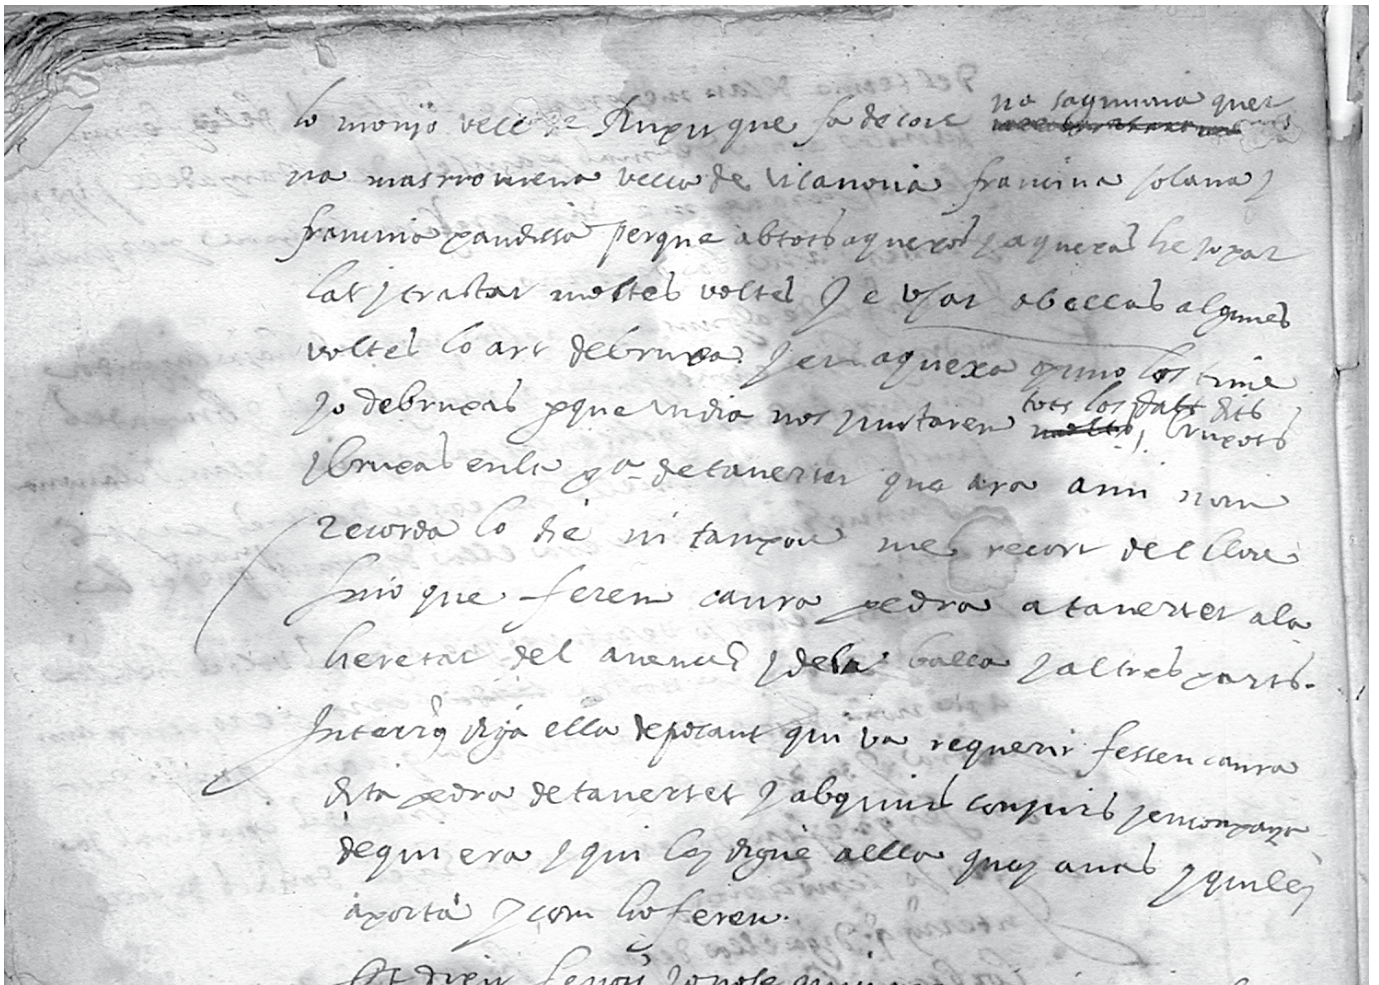 lo monjo vell de Rupit que fa de cort na sagimona quer
na mas rovirena vella de vilanova francina solana y
francina pandissa perque ab tots aquexos y aquexas he jo par
lat y tractat moltes voltes y e usat ab ellas algunes
voltes lo art de bruxa. y en aquexa los tinc
jo de bruxas pque un dia nos juntarem tots los dits bruxots
y bruxas en la pa de tavertet que ara a mi nom
recorda lo die ni tampoc mes recort del lloc
sino que ferem caura pedra a tavertet a la
heretat del avenc y de la balla y altres parts.
Interrogª diga ella deposant qui va requerir fessen caura
dita pedra de tavertet y ab quins conjuris y en companya
de qui era y qui ley digué a ella quey anas y qui ley
aporta y com ho feren.
Et dix senor jo no se qui